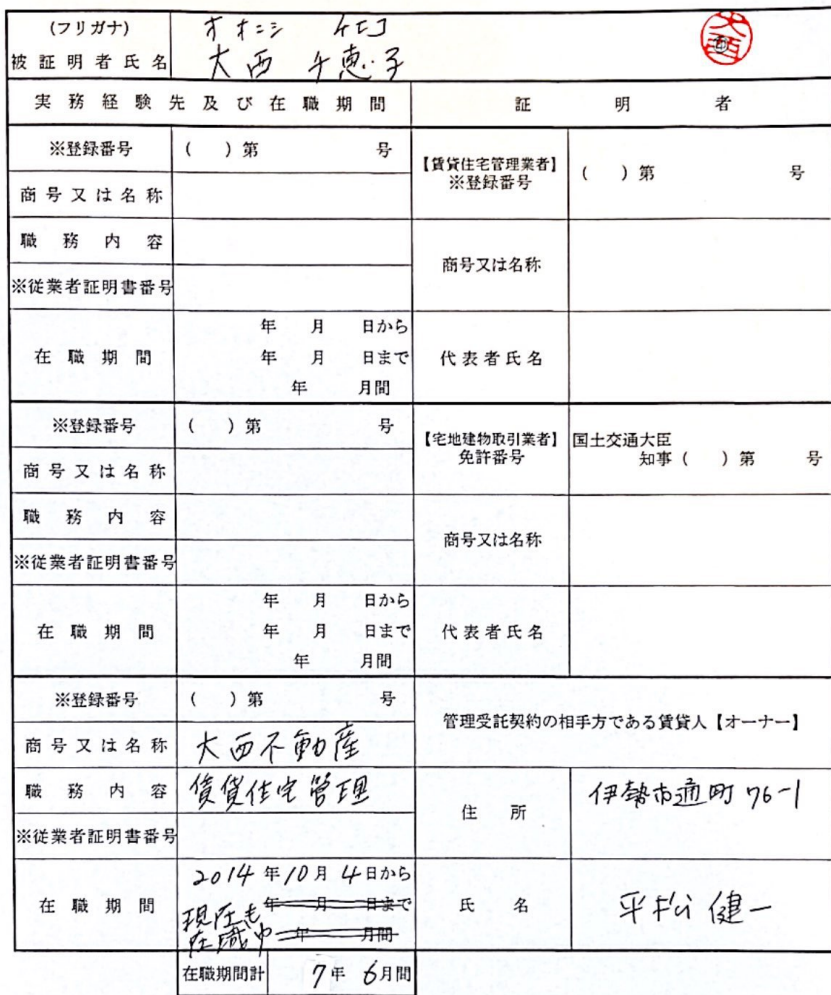 (フリガナ) オオニシ チエコ
被証明者氏名 大西 千恵子
実務経験先及び在職期間 証明者
※登録番号 ( )第 号
【賃貸住宅管理業者】
※登録番号 ( )第 号
商号又は名称
職務内容
商号又は名称
※従業者証明書番号
年 月 日から
在職期間 年 月 日まで
年 月間
代表者氏名
※登録番号 ( )第 号
【宅地建物取引業者】
免許番号
国土交通大臣
知事( )第 号
商号又は名称
職務内容
商号又は名称
※従業者証明書番号
年 月 日から
在職期間 年 月 日まで
年 月間
代表者氏名
※登録番号 ( )第 号
管理受託契約の相手方である賃貸人【オーナー】
商号又は名称 大西不動産
職務内容 賃貸住宅管理
住所 伊勢市通町76-1
※従業者証明書番号
2014年10月4日から
在職期間 年 月 日まで
現在も
在職中 年 月間
氏名 平松 健一
在職期間計 7年 6月間